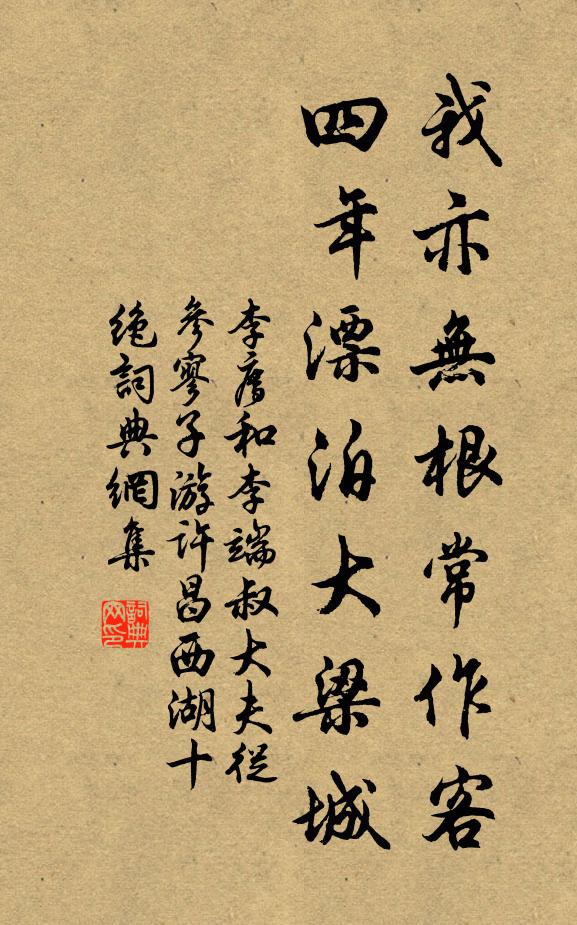 我亦無根常作客
四年漂泊大梁城
李廌和李端叔大夫從
參寥子游許昌西湖十
絶詞典網集
詞典
网印